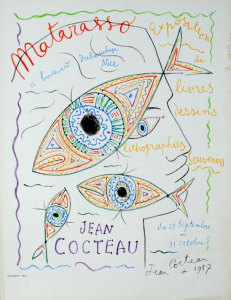 Matarasso
Exposition
de
boulevard Dubouchage
Nice
livres
dessins
lithographies
Souvenirs
JEAN
COCTEAU
du 27 Septembre
au
31 octobre
Jean Cocteau
1957